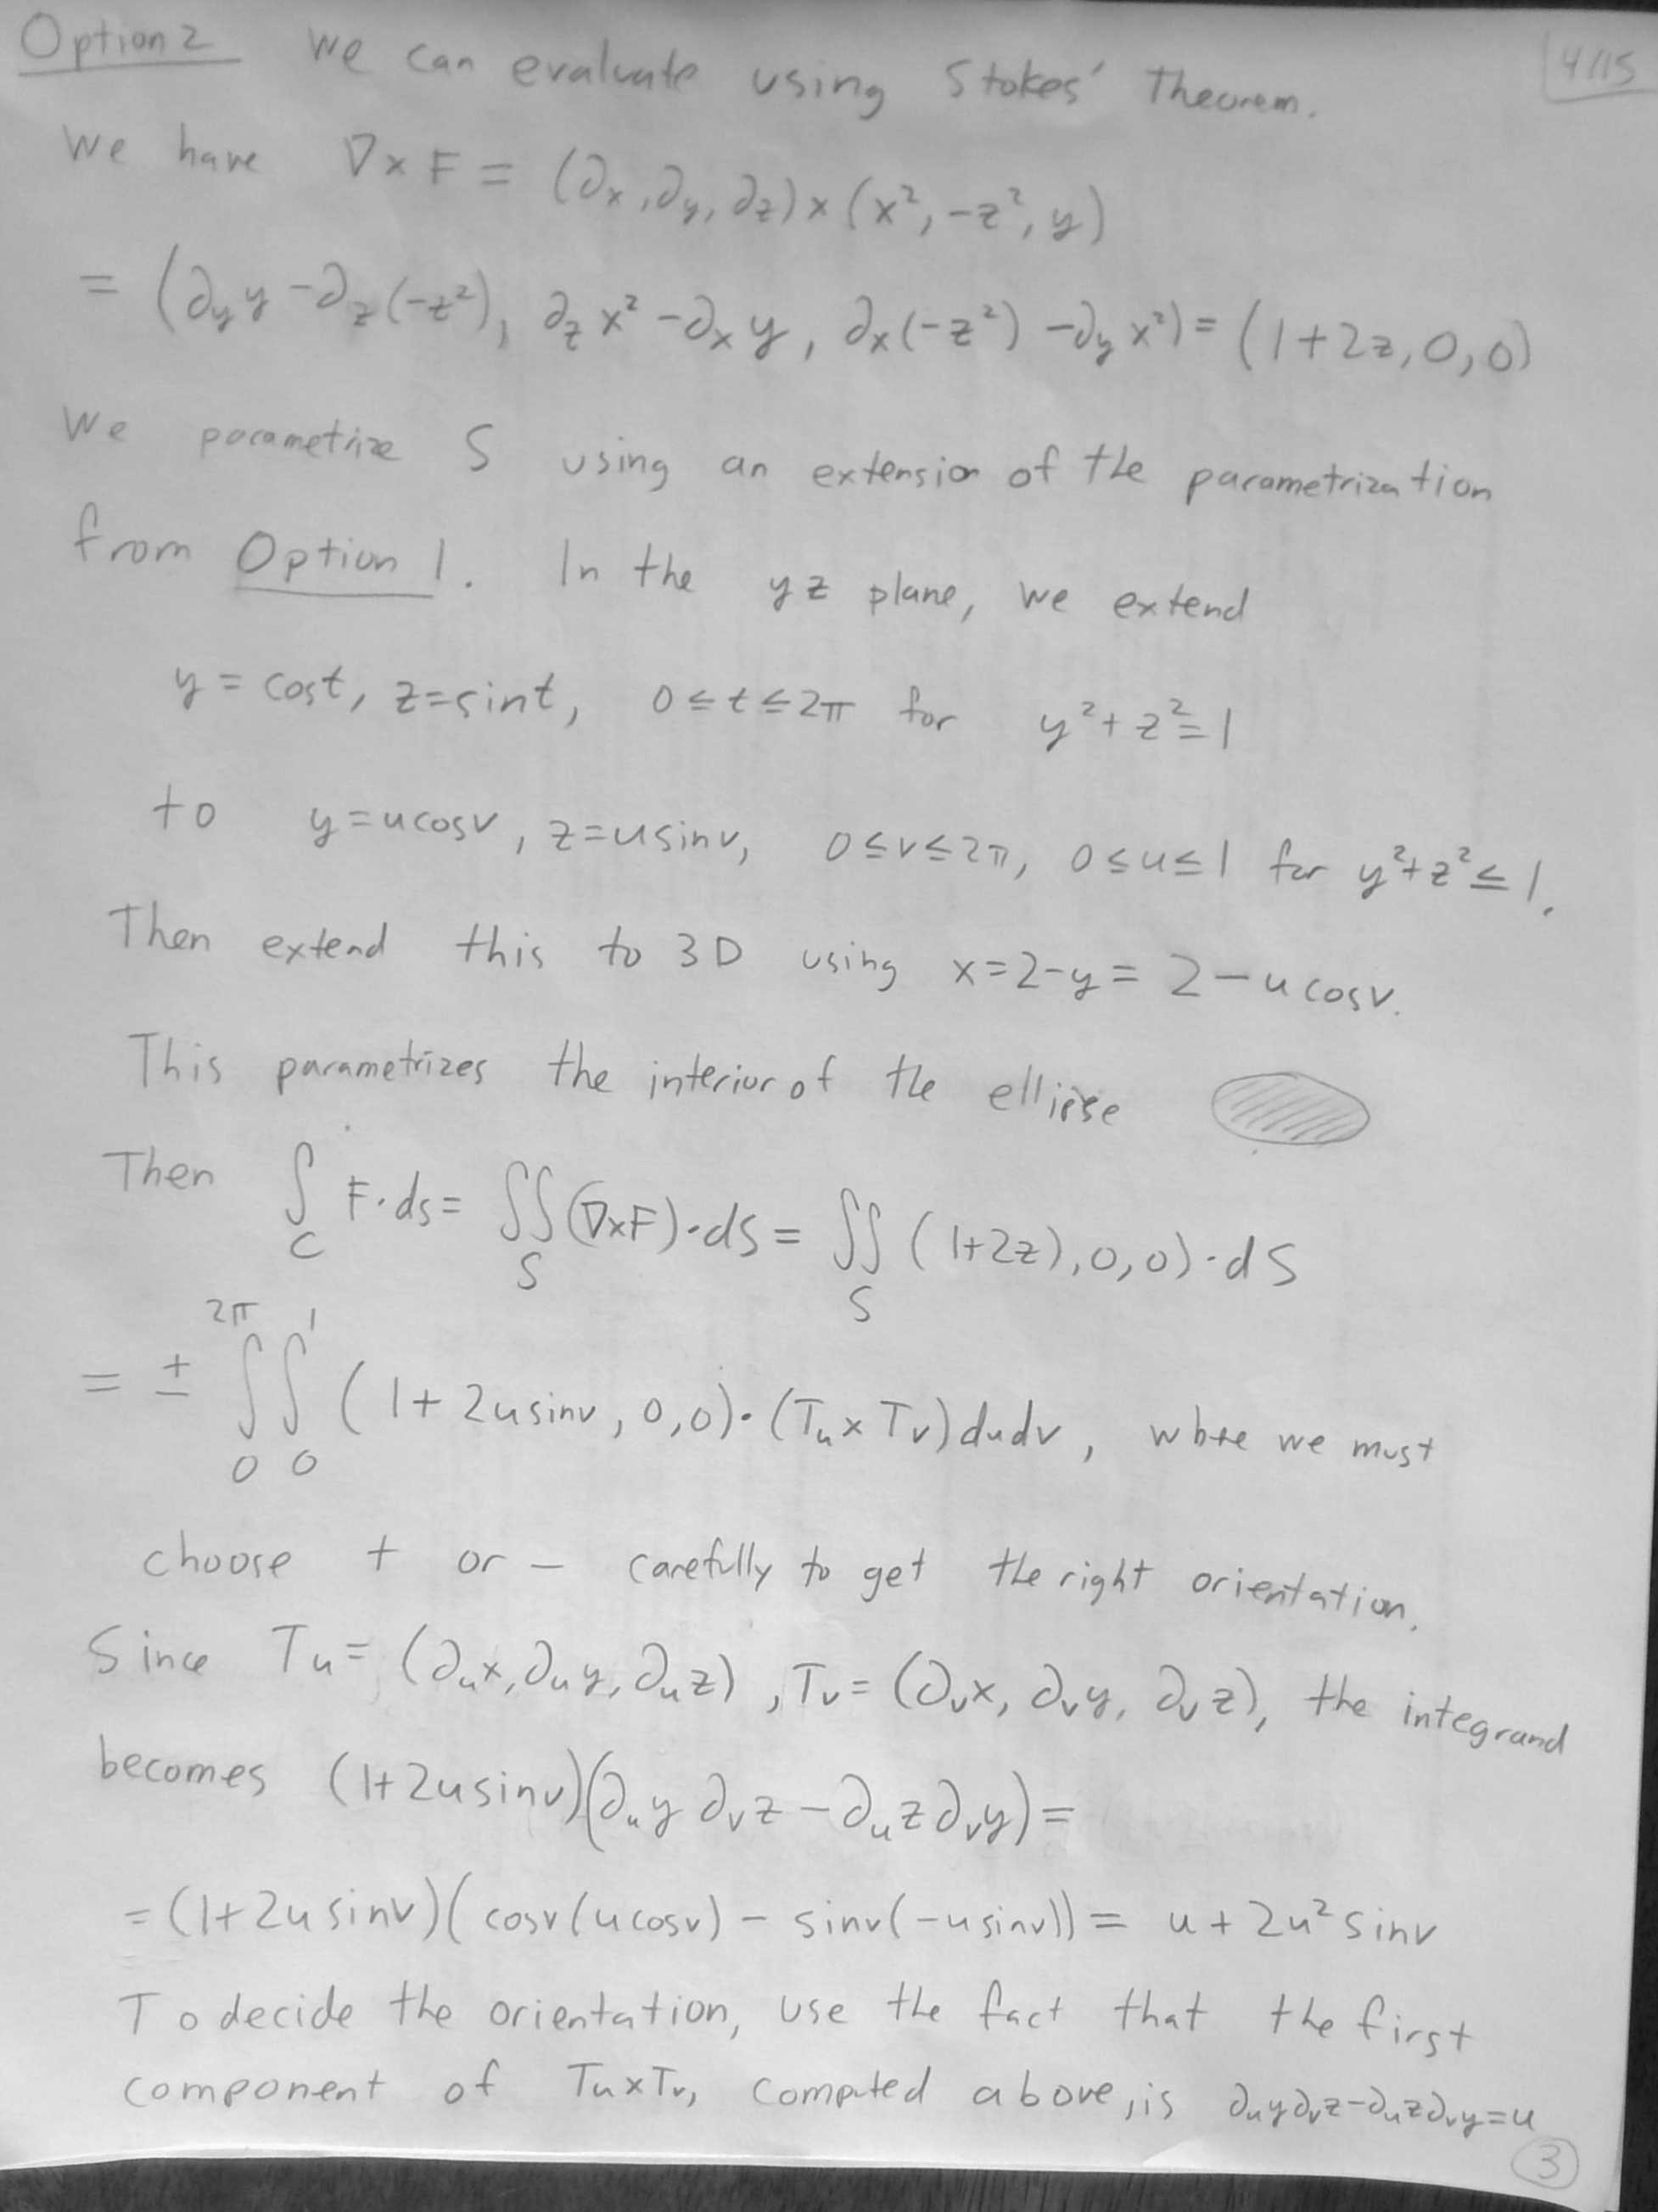 Option 2 We can evaluate using Stokes' Theorem. 4/15
We have ∇×F = (∂x, ∂y, ∂z) × (x², -z², y)
= (∂y y - ∂z(-z²), ∂z x² - ∂x y, ∂x(-z²) - ∂y x²) = (1+2z, 0, 0)
We parametrize S using an extension of the parametrization
from Option 1. In the yz plane, we extend
y = cost, z = sint, 0 ≤ t ≤ 2π for y² + z² = 1
to y = u cosv, z = u sinv, 0 ≤ v ≤ 2π, 0 ≤ u ≤ 1 for y² + z² ≤ 1.
Then extend this to 3D using x = 2-y = 2 - u cosv.
This parametrizes the interior of the ellipse
Then ∫_C F·ds = ∬_S (∇×F)·dS = ∬_S (1+2z), 0, 0)·dS
= ± ∫_0^{2π} ∫_0^1 (1+2u sinv, 0, 0)·(Tu × Tv) du dv, where we must
choose + or - carefully to get the right orientation.
Since Tu = (∂u x, ∂u y, ∂u z), Tv = (∂v x, ∂v y, ∂v z), the integrand
becomes (1+2u sinv)(∂u y ∂v z - ∂u z ∂v y) =
= (1+2u sinv)(cosv(u cosv) - sinv(-u sinv)) = u + 2u² sinv
To decide the orientation, use the fact that the first
component of Tu × Tv, computed above, is ∂u y ∂v z - ∂u z ∂v y = u
3